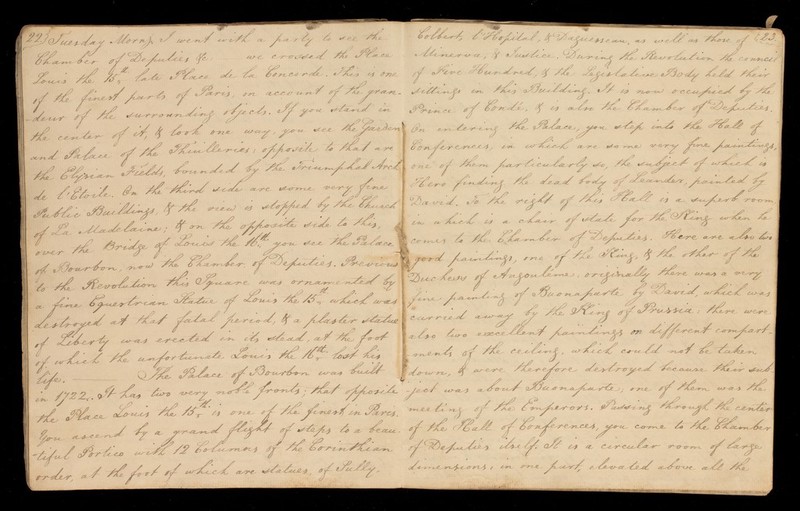 22) Tuesday Morng. I went with a party to see the
Chamber of Deputies, &c. we crossed the Place
Louis the 15th. late Place de la Concorde. This is one
of the finest parts of Paris, on account of the gran-
-deur of the surrounding objects. If you stand in
the center of it, & look one way, you see the Garden
and Palace of the Thuilleries; opposite to that are
the Elysian Fields, bounded by the Triumphal Arch
de l'Etoile. On the third side are some very fine
Public Buildings, & the view is stopped by the Church
of La Madelaine; & on the opposite side to this,
over the Bridge of Louis the 16th. you see the Palace
of Bourbon, now the Chamber of Deputies. Previous
to the Revolution this Square was ornamented by
a fine Equestrian Statue of Louis the 15., which was
destroyed at that fatal period, & a plaster statue
of Liberty was erected in its stead, at the foot
of which the unfortunate Louis the 16th. lost his
life. The Palace of Bourbon was built
in 1722,. It has two very noble fronts; that opposite
the Place Louis the 15th. is one of the finest in Paris.
You ascend by a grand flight of steps to a beau-
-tiful Portico with 12 Columns of the Corinthian
order, at the foot of which are statues, of Sully-
(23
Colbert, L'Hopital, & Daguesseau, as well as those of
Minerva, & Justice. During the Revolution the council
of Five Hundred, & the Legislative Body held their
sittings in this Building. It is now occupied by the
Prince of Condé, & is also the Chamber of Deputies.
On entering the Palace, you step into the Hall of
Conferences, in which are some very fine paintings,
one of them particularly so, the subject of which is
Hero finding the dead body of Leander, painted by
David. To the right of this Hall is a superb room
in which is a chair of state for the King when he
comes to the Chamber of Deputies. Here are also two
good paintings, one of the King, & the other of the
Duchess of Angouleme; originally there was a very
fine painting of Buonaparte, by David, which was
carried away by the King of Prussia: there were
also two excellent paintings on different compart-
-ments of the ceiling, which could not be taken
down, & were therefore destroyed because their sub-
-ject was about Buonaparte; one of them was the
meeting of the Emperors. Passing through the center
of the Hall of Conferences, you come to the Chamber
of Deputies itself. It is a circular room of large
dimensions; in one part, elevated above all the